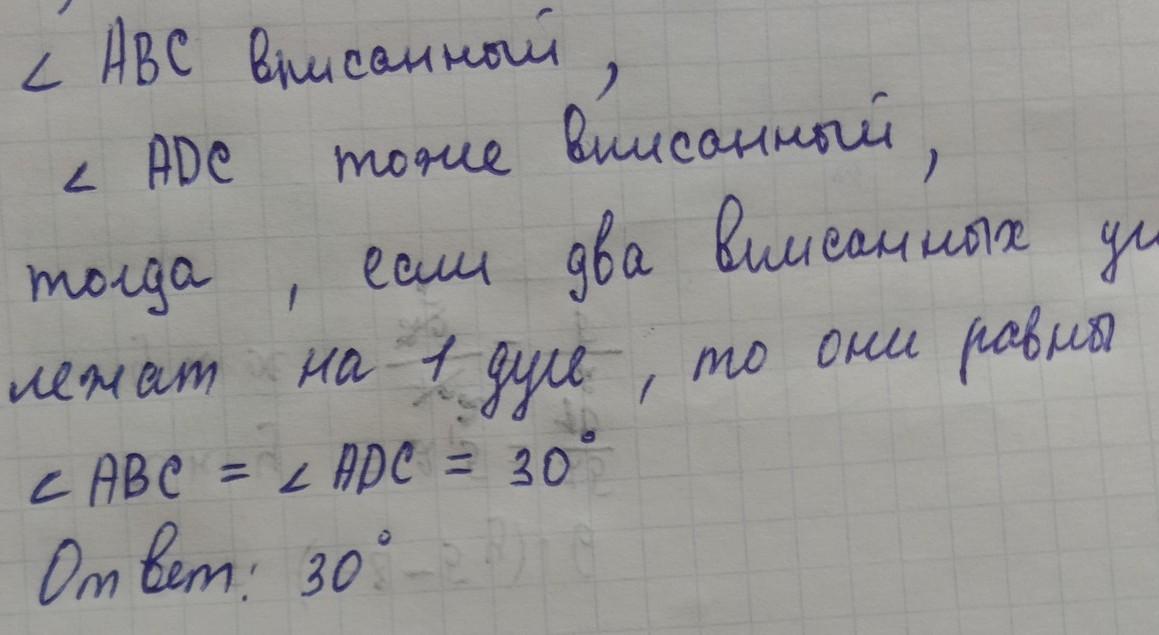 ∠ ABC вписанный,
∠ ADC тоже вписанный,
тогда, если два вписанных уг
лежат на 1 дуге, то они равны
∠ ABC = ∠ ADC = 30°
Ответ: 30°